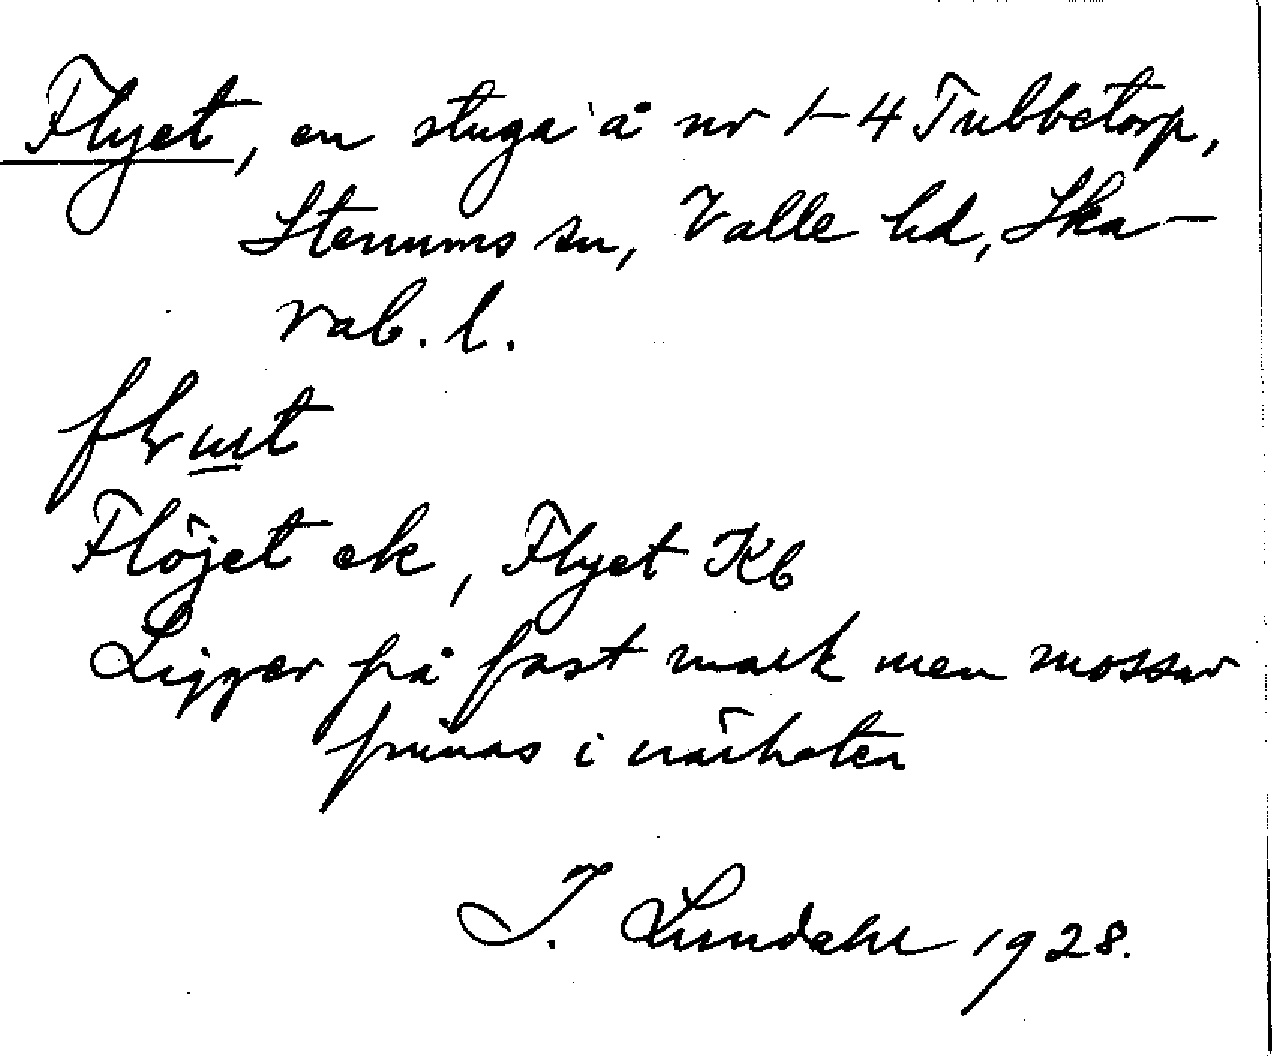 Flyet, en stuga å nr 1-4 Tubbetorp,
Stenums sn, Valle hd, Ska-
rab. l.
Flöjet ek, Flyet Kb
Ligger på fast mark men mossar
finnas i närheten
I. Lundahl 1928.